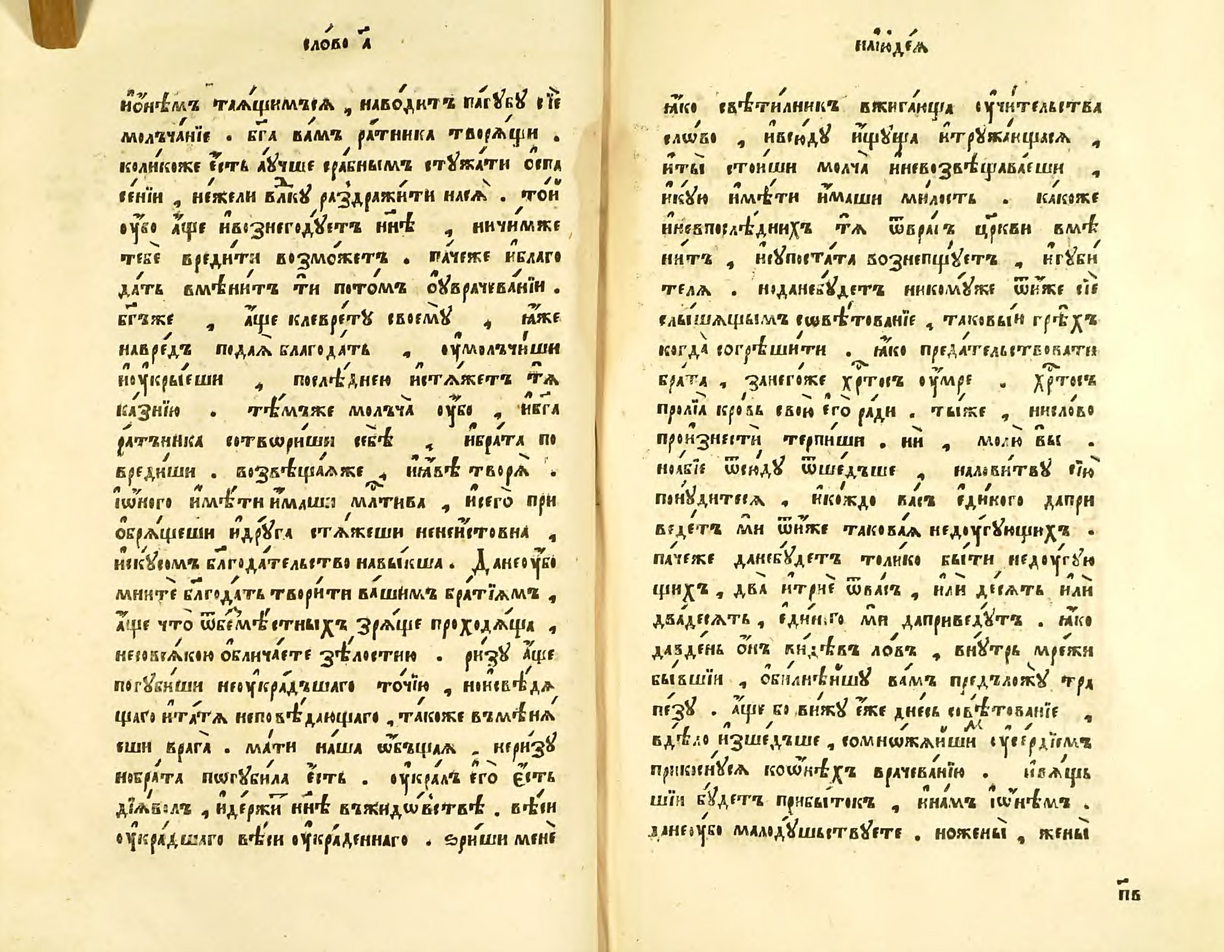 сло́во а҃
и҆ѻ҆нѣ́мъ таѧ́щимъсѧ , наво́дитъ па́гꙋбꙋ сїѐ
молъча́нїе . бг҃а ва́мъ ра́тника творѧ́щи .
коли́коже є҆́сть лꙋ́чше срабны́мъ стꙋжа́ти ѻ҆спа
се́нїи , не́жели влⷣкꙋ раздражи́ти насѧ̀ . то́й
ᲂу҆́бо а҆́ще и҆вознегодꙋ́етъ нн҃ѣ , ничи́мже
тебѐ вреди́ти возмо́жетъ . па́чеже и҆благо
да́ть вмѣни́тъ ти пото́мъ ᲂу҆врачева́нїи .
бг҃ъже , а҆́ще клевре́тꙋ своемꙋ̀ , ꙗ҆́же
навре́дъ пода́ѧ благода́ть , ᲂу҆молъчи́ши
и҆ᲂу҆кры́еши , послѣ́днею и҆стѧ́жетъ тѧ̀
ка́знїю . тѣ́мъже молъча̀ ᲂу҆́бо , и҆бг҃а
ра́тъника сотвѡри́ши себѣ̀ , и҆бра́та по
вреди́ши . возвѣща́ѧже , и҆ꙗ҆́вѣ творѧ̀ .
і҆ѻ҆ного и҆мѣ́ти и҆́маши млⷭ҇тива , и҆сего̀ при
ѻ҆брѧ́щеши и҆дрꙋ́га стѧ́жеши ненеи́стовна ,
и҆скꙋ́сомъ бл҃года́тельство навы́кша . Данеᲂу҆́бо
мни́те бл҃года́ть твори́ти ва́шимъ бра́тїѧмъ ,
а҆́ще что̀ ѿбемѣ́стныхъ зрѧ́ще проходѧ́ща ,
несовсѧ́кою ѻ҆блича́ете зѣ́лостию . ри́зꙋ а҆́ще
погꙋби́ши неᲂу҆кра́дъшаго то́чїю , ноисвѣ́дѧ
щаго и҆та́тѧ неповѣ́дающаго , та́коже въмѣнѧ́
еши врага̀ . ма́ти на́ша ѻ҆́бъщаѧ , неризꙋ
нобра́та пѡгꙋби́ла є҆́сть . ᲂу҆кра́лъ є҆го̀ є҆́сть
дїѧ́волъ , и҆держи́ нн҃ѣ въжидѡ́вствѣ . вѣ́си
ᲂу҆кра́дшаго вѣ́си ᲂу҆кра́деннаго . зри́ши менѐ
наїю҆де́ѧ
ꙗ҆́ко свѣти́лникъ вжига́юща ᲂу҆чи́тельства
сло́во , и҆всю́дꙋ и҆́щꙋща и҆трꙋжа́ющасѧ ,
и҆ты̀ стои́ши молча̀ и҆невозвѣщава́еши ,
и҆кꙋ́ю и҆мѣ́ти и҆́маши ми́лость . ка́коже
и҆невпослѣ́днихъ тѧ̀ ѿвра́гъ цр҃кви вмѣ
ни́тъ , и҆сꙋпоста́та возненщꙋ́етъ , и҆гꙋби́
телѧ . ноданебꙋ́детъ никомꙋ́же ѿни́же сїѐ
слы́шѧщымъ сѡвѣ́тованїе , таковы́и грѣ́хъ
когда̀ согрѣши́ти . ꙗ҆́ко преда́тельствовати
бра́та , занего́же хрⷭ҇то́съ ᲂу҆́мре . хрⷭ҇то́съ
пролїѧ̀ кро́вь свою̀ є҆го̀ ра́ди . ты́же , нисло́во
произнестѝ те́рпиши . нѝ , молю̀ вы̀ .
ноа́бїе ѿсю́дꙋ ѿше́дъше , налови́твꙋ сїю̀
понꙋ́дитесѧ , и҆ко́ждо ва́съ є҆ди́ного дапри
веде́тъ мѝ ѿни́же такова́ѧ недᲂу҆гꙋющихъ .
па́чеже данебꙋ́детъ то́лико бы́ти недᲂу҆гꙋ́ю
щихъ , два̀ и҆трїѐ ѿва́съ , и҆лѝ де́сѧть и҆лѝ
два́десѧть , є҆ди́наго мѝ даприведꙋ́тъ . ꙗ҆́ко
да́вде́нь ѻ҆́нъ ви́дѣвъ ло́въ , внꙋ́трь мре́жи
бы́вшїи , ѻ҆били́ѣйшꙋ ва́мъ предъложꙋ̀ тра
пе́зꙋ . а҆́ще бо ви́жꙋ є҆́же дне́сь совѣ́тованїе ,
вдѣ́ло и҆зше́дъше , сомно́жайши ᲂу҆се́рдїемъ
прикоснꙋ́сѧ коѻ҆нѣ́хъ врачева́нїю . и҆вѧ́щь
шїи бꙋ́детъ прибы́токъ , и҆на́мъ і҆ѻ҆нѣ́мъ .
данеᲂу҆́бо малодꙋ́шьствꙋете . ножены̀ , жены̀
пв҃